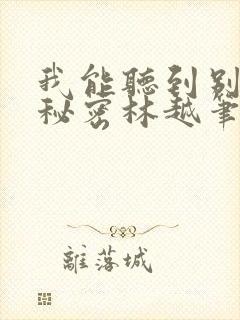 我能聽到別
秘密林越筆
離落城